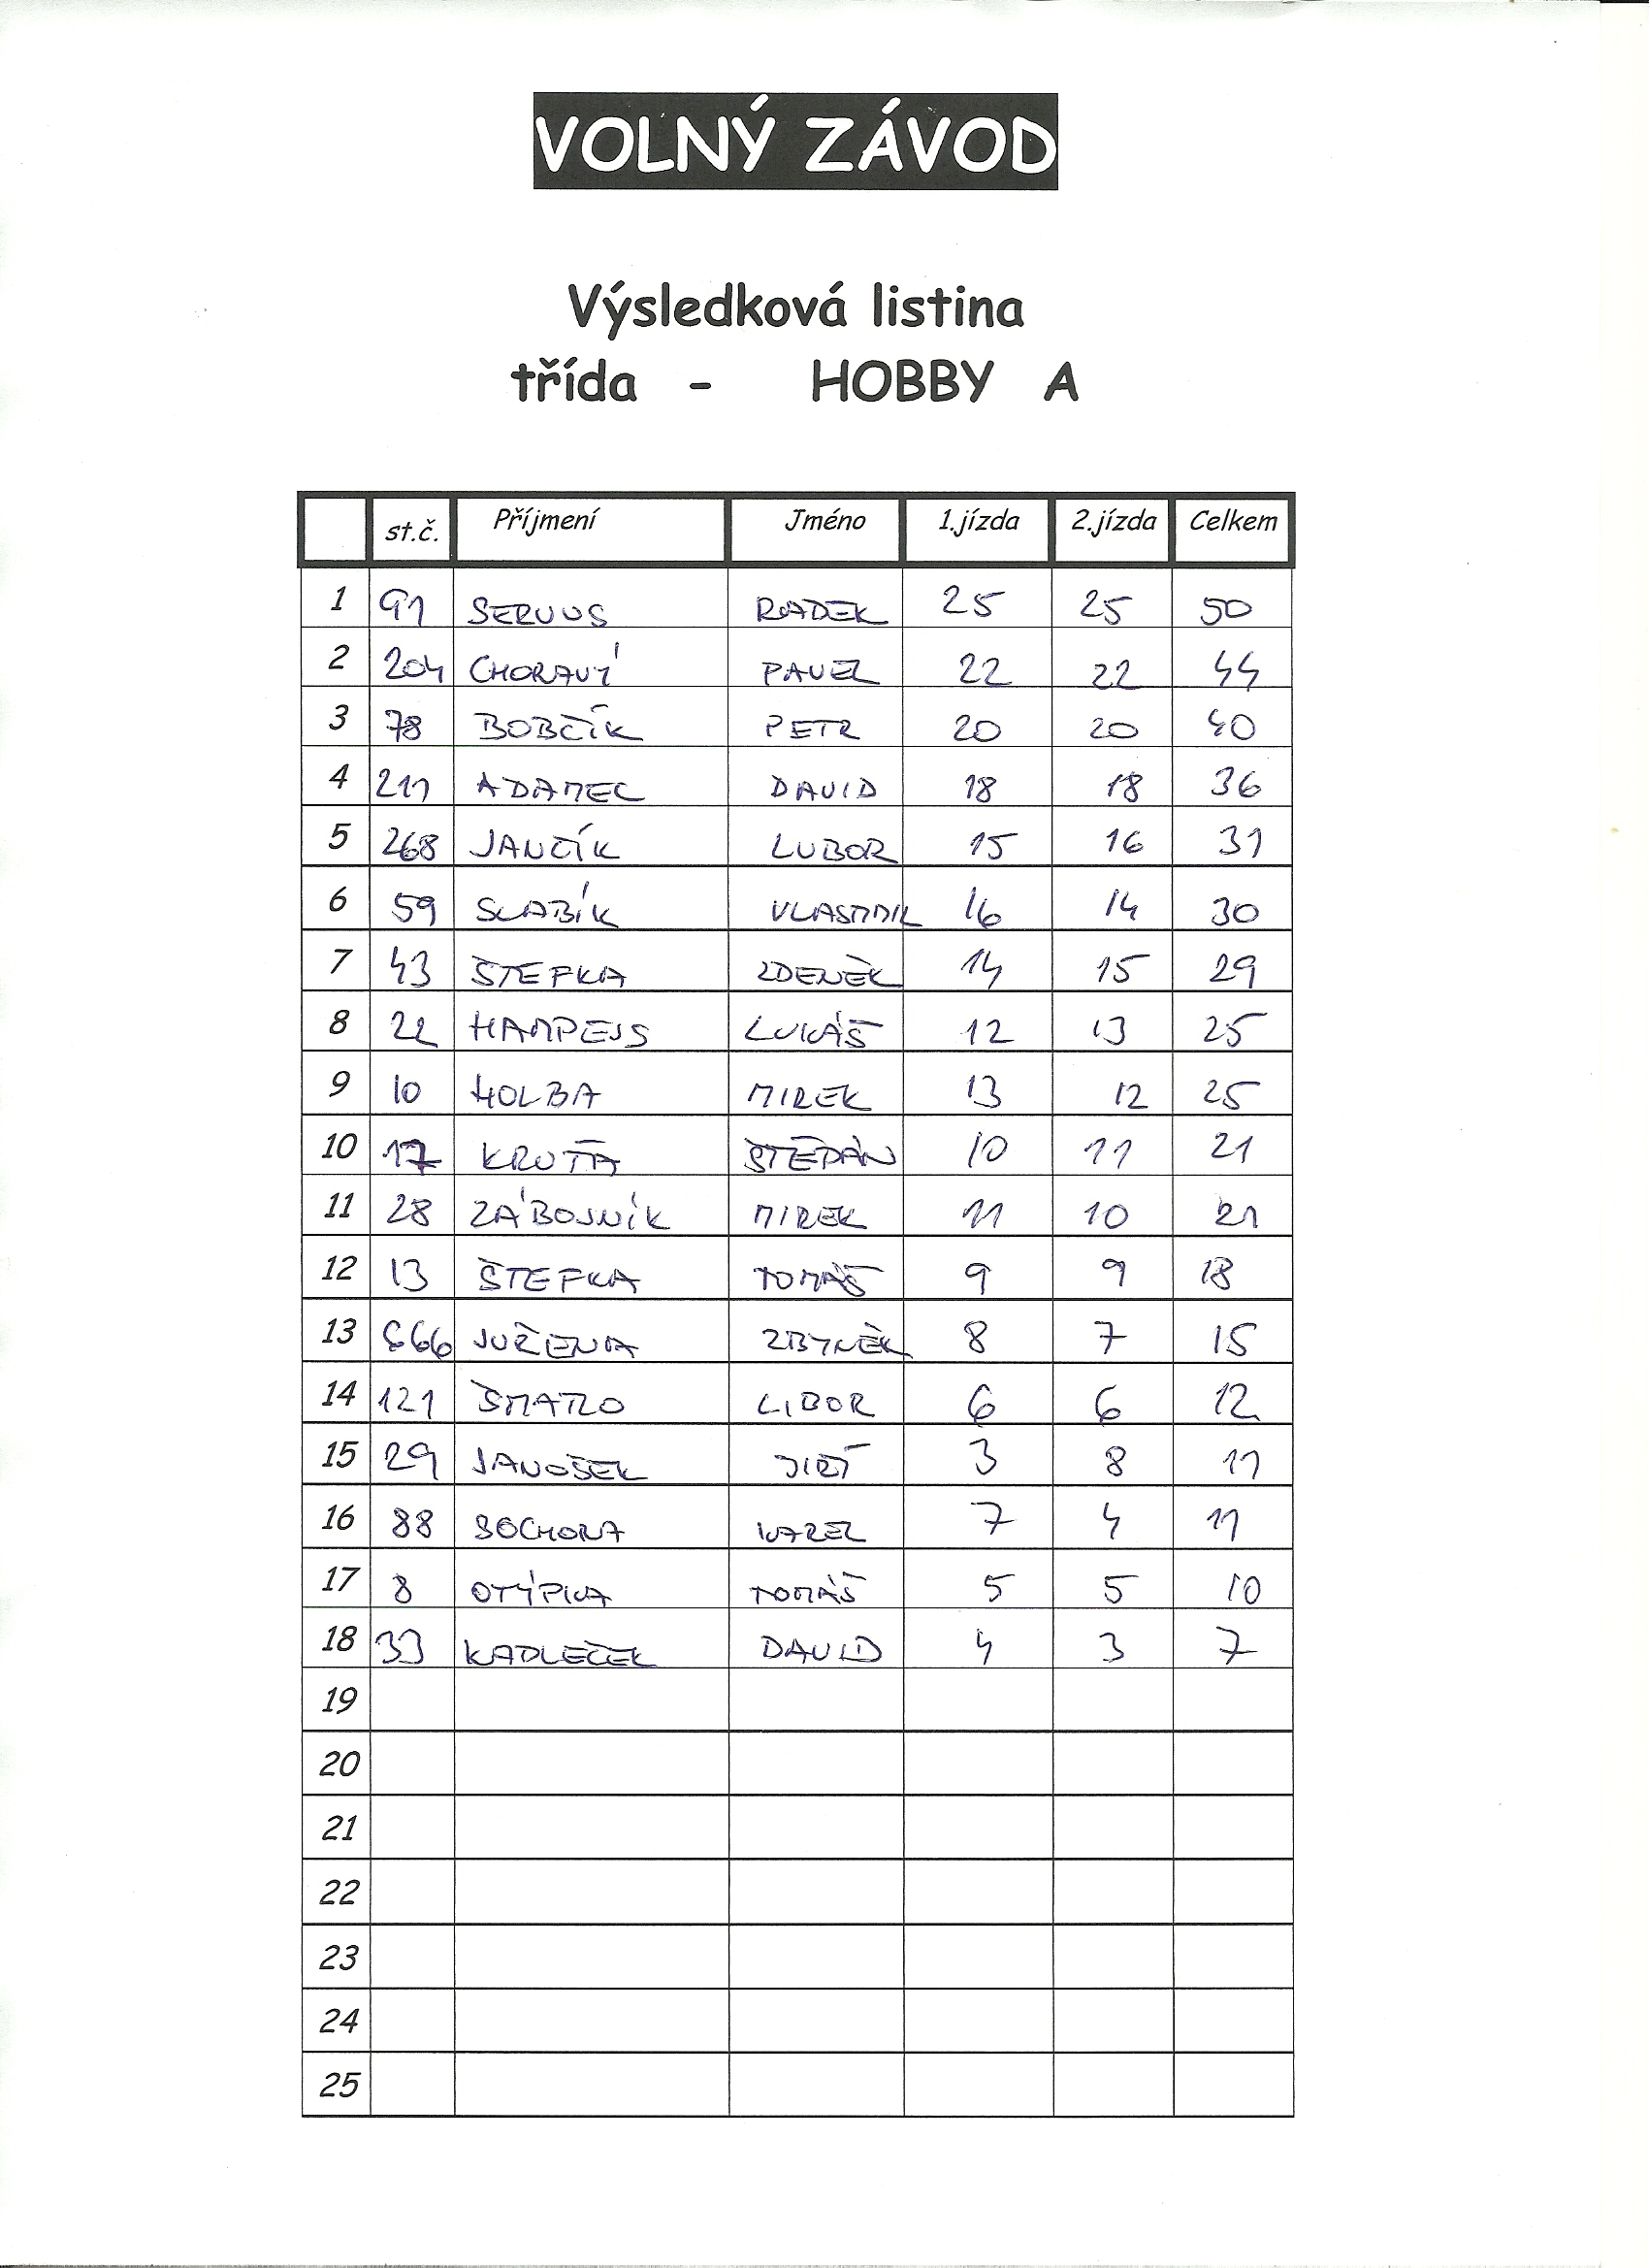 VOLNÝ ZÁVOD
Výsledková listina
třída - HOBBY A
st.č. Příjmení Jméno 1.jízda 2.jízda Celkem
1 91 SERVUS RADEK 25 25 50
2 204 CHORAVÝ PAVEL 22 22 44
3 78 BOBČÍK PETR 20 20 40
4 211 ADAMEC DAVID 18 18 36
5 268 JANČÍK LUBOR 15 16 31
6 59 SLABÍK VLASTIMIL 16 14 30
7 43 ŠTEFKA ZDENĚK 14 15 29
8 22 HAMPEJS LUKÁŠ 12 13 25
9 10 HOLBA MIREK 13 12 25
10 17 KRUTA ŠTĚPÁN 10 11 21
11 28 ZÁBOJNÍK MIREK 11 10 21
12 13 ŠTEFKA TOMÁŠ 9 9 18
13 666 JUŘENA ZBYNĚK 8 7 15
14 121 ŠMATLO LIBOR 6 6 12
15 29 JANOŠEK JIŘÍ 3 8 11
16 88 SOCHORA KAREL 7 4 11
17 8 OTÝPKA TOMÁŠ 5 5 10
18 33 KADLEČEK DAVID 4 3 7
19
20
21
22
23
24
25